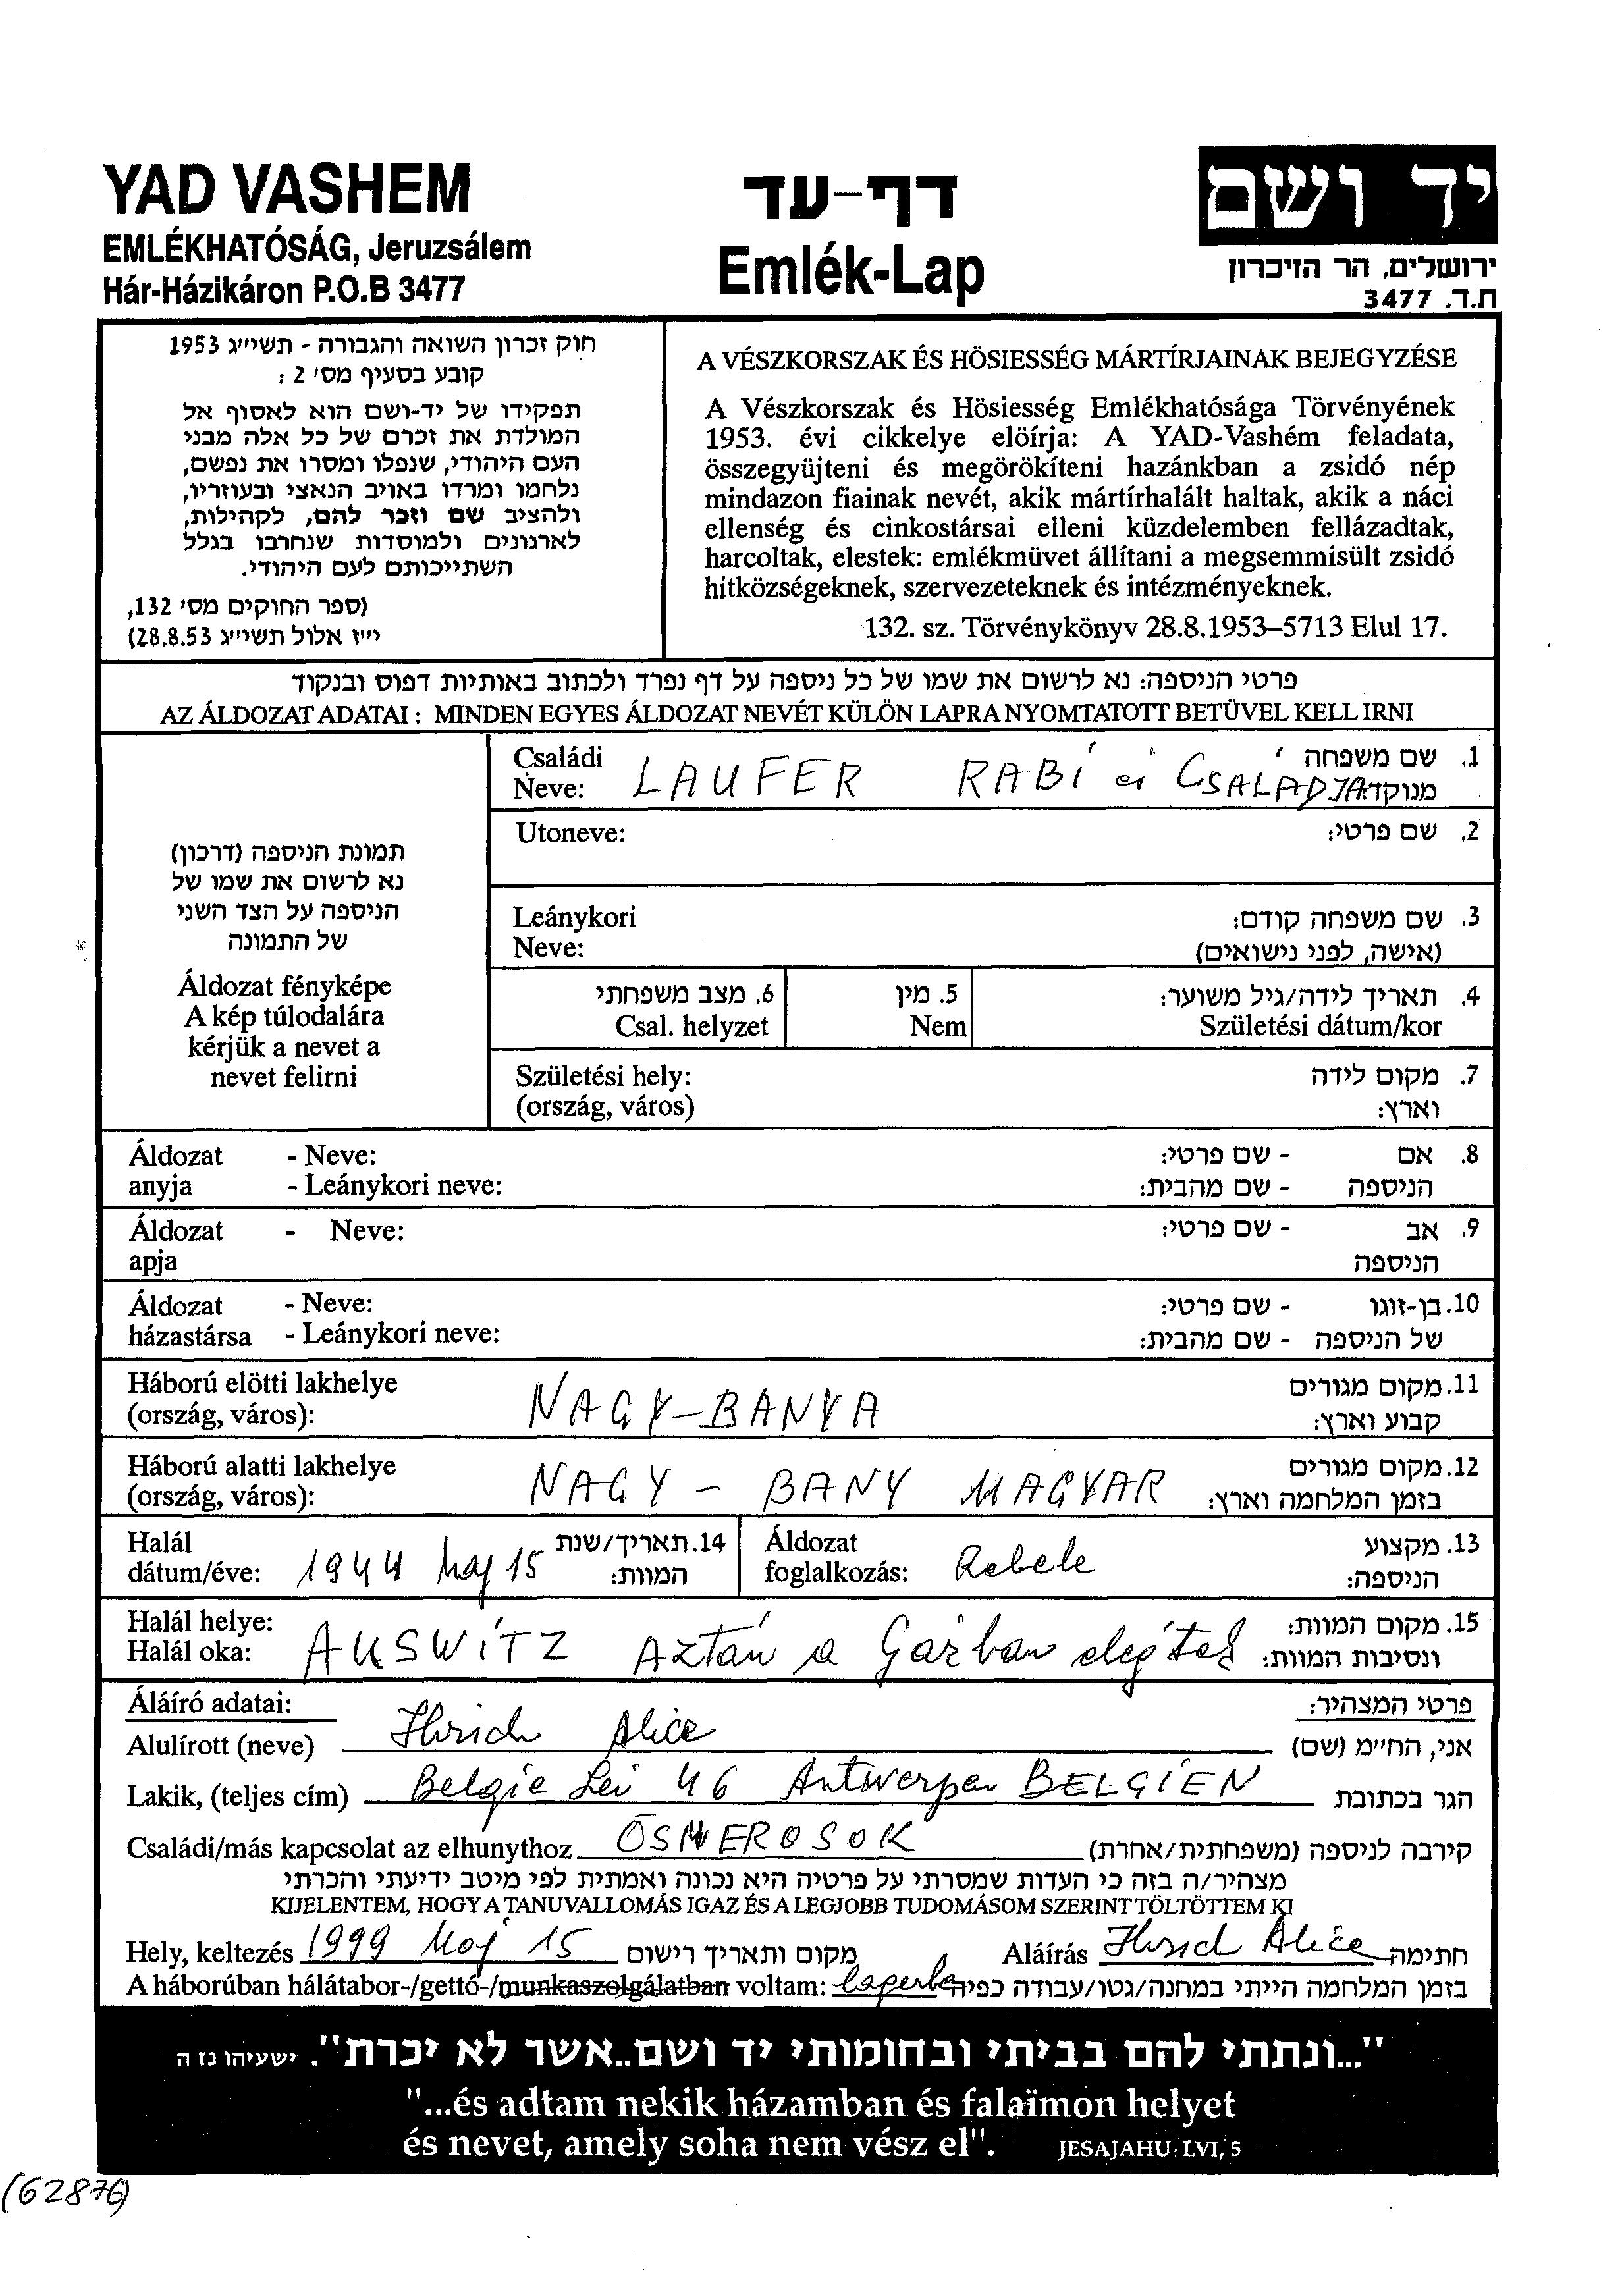 YAD VASHEM
EMLÉKHATÓSÁG, Jeruzsálem
Hár-Házikáron P.O.B 3477
דף-עד
Emlék-Lap
יד ושם
ירושלים, הר הזיכרון
ת.ד. 3477
חוק זכרון השואה והגבורה - תשי״ג 1953
קובע בסעיף מס׳ 2 :
תפקידו של יד-ושם הוא לאסוף אל
המולדת את זכרם של כל אלה מבני
העם היהודי, שנפלו ומסרו את נפשם,
נלחמו ומרדו באויב הנאצי ובעוזריו,
ולהציב שם וזכר להם, לקהילות,
לארגונים ולמוסדות שנחרבו בגלל
השתייכותם לעם היהודי.
(ספר החוקים מס׳ 132,
י״ז אלול תשי״ג 28.8.53)
A VÉSZKORSZAK ÉS HÖSIESSÉG MÁRTÍRJAINAK BEJEGYZÉSE
A Vészkorszak és Hösiesség Emlékhatósága Törvényének
1953. évi cikkelye elöírja: A YAD-Vashém feladata,
összegyüjteni és megörökíteni hazánkban a zsidó nép
mindazon fiainak nevét, akik mártírhalált haltak, akik a náci
ellenség és cinkostársai elleni küzdelemben fellázadtak,
harcoltak, elestek: emlékmüvet állítani a megsemmisült zsidó
hitközségeknek, szervezeteknek és intézményeknek.
132. sz. Törvénykönyv 28.8.1953–5713 Elul 17.
פרטי הניספה: נא לרשום את שמו של כל ניספה על דף נפרד ולכתוב באותיות דפוס ובנקוד
AZ ÁLDOZAT ADATAI : MINDEN EGYES ÁLDOZAT NEVÉT KÜLÖN LAPRA NYOMTATOTT BETÜVEL KELL IRNI
תמונת הניספה (דרכון)
נא לרשום את שמו של
הניספה על הצד השני
של התמונה
Áldozat fényképe
A kép túlodalára
kérjük a nevet a
nevet felirni
Családi Neve: LAUFER RABÍ és CSALADJA 1. שם משפחה מנוקד:
Utoneve: 2. שם פרטי:
Leánykori Neve: 3. שם משפחה קודם:
(אישה, לפני נישואים)
6. מצב משפחתי 5. מין 4. תאריך לידה/גיל משוער:
Csal. helyzet Nem Születési dátum/kor
Születési hely: 7. מקום לידה
(ország, város) וארץ:
Áldozat - Neve: - שם פרטי: 8. אם
anyja - Leánykori neve: - שם מהבית: הניספה
Áldozat - Neve: - שם פרטי: 9. אב
apja הניספה
Áldozat - Neve: - שם פרטי: 10. בן-זוגו
házastársa - Leánykori neve: - שם מהבית: של הניספה
Háború elötti lakhelye 11. מקום מגורים
(ország, város): NAGY-BANYA קבוע וארץ:
Háború alatti lakhelye 12. מקום מגורים
(ország, város): NAGY - BANY MAGYAR בזמן המלחמה וארץ:
Halál 14. תאריך/שנת Áldozat 13. מקצוע
dátum/éve: 1944 Maj 15 המוות: foglalkozás: Rebele הניספה:
Halál helye: 15. מקום המוות:
Halál oka: AUSWÍTZ Aztán a Gázban elégtek ונסיבות המוות:
Áláíró adatai: פרטי המצהיר:
Alulírott (neve) Hirsch Alice אני, הח״מ (שם)
Lakik, (teljes cím) Belgie Lei 46 Antwerpen BELGÍEN הגר בכתובת
Családi/más kapcsolat az elhunythoz ÖSMEROSOK קירבה לניספה (משפחתית/אחרת)
מצהיר/ה בזה כי העדות שמסרתי על פרטיה היא נכונה ואמתית לפי מיטב ידיעתי והכרתי
KIJELENTEM, HOGY A TANUVALLOMÁS IGAZ ÉS A LEGJOBB TUDOMÁSOM SZERINT TÖLTÖTTEM KI
Hely, keltezés 1999 Maj 15 מקום ותאריך רישום Aláírás Hirsch Alice חתימה
A háborúban hálátabor-/gettó-/munkaszolgálatban voltam: בזמן המלחמה הייתי במחנה/גטו/עבודה כפיה
"...ונתתי להם בביתי ובחומותי יד ושם..אשר לא יכרת". ישעיהו נו ה
"...és adtam nekik házamban és falaïmon helyet
és nevet, amely soha nem vész el". JESAJAHU LVI, 5
(62876)